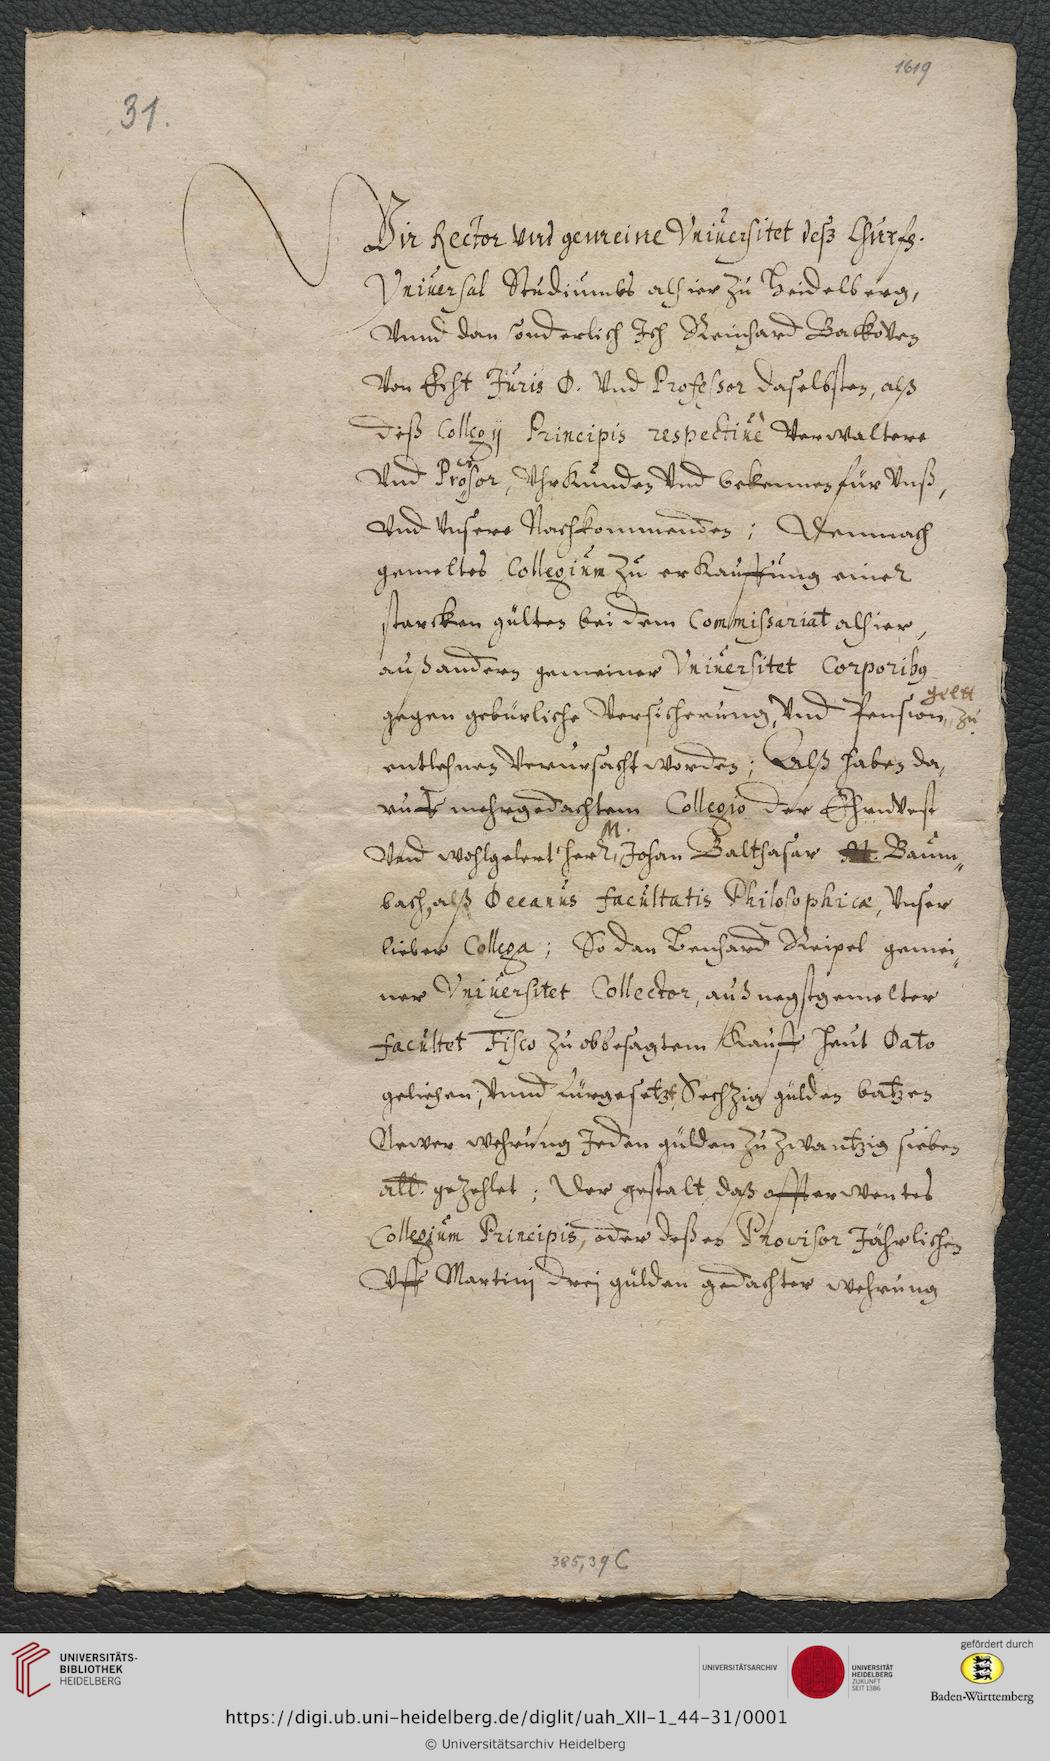 1619
31.
Wir Rector vnd gemeine Vniuersitet deß Churfs.
Vniuersal Studiumbs alhier zu Heidelberg,
vnnd dan sonderlich Ich Reinhard Backoven
von Echt Juris D. vnd Professor daselbsten, alß
deß Collegij Principis respectiuè verwaltere
vnd Prouisor, vhrkunden vnd bekennen für vnß,
vnd vnsere Nachkommenden; Demnach
gemeltes Collegium zu erkauffung einer
starcken gülten bei dem Commissariat alhier,
auß andern gemeiner Vniuersitet Corporibus
gegen gebürliche versicherung, vnd Pension, gelt zu
entlehnen verursacht worden; Alß haben da,
ruff mehrgedachtem Collegio der Ehrnvest
vnd wohlgelert herr, M. Johan Balthasar M. Baum„
bach, alß Decanus facultatis Philosophicæ, vnser
lieber Collega; So dan Lenhard Reipel gemei„
ner Vniuersitet Collector, auß negstgemelter
facultet Fisco zu obbesagtem Kauff heut Dato
geliehen, vnnd fürgesetzt, Sechzig gülden batzen
Newer wehrung Jeden gülden zu zwantzig sieben
alb. gezehlet; Der gestalt, daß offterwentes
Collegium Principis, oder deßen Provisor Jährlichen
vff Martinj drej gülden gedachter wehrung
385,39 C
UNIVERSITÄTS-
BIBLIOTHEK
HEIDELBERG
UNIVERSITÄTSARCHIV
UNIVERSITÄT
HEIDELBERG
ZUKUNFT
SEIT 1386
gefördert durch
Baden-Württemberg
https://digi.ub.uni-heidelberg.de/diglit/uah_XII-1_44-31/0001
© Universitätsarchiv Heidelberg